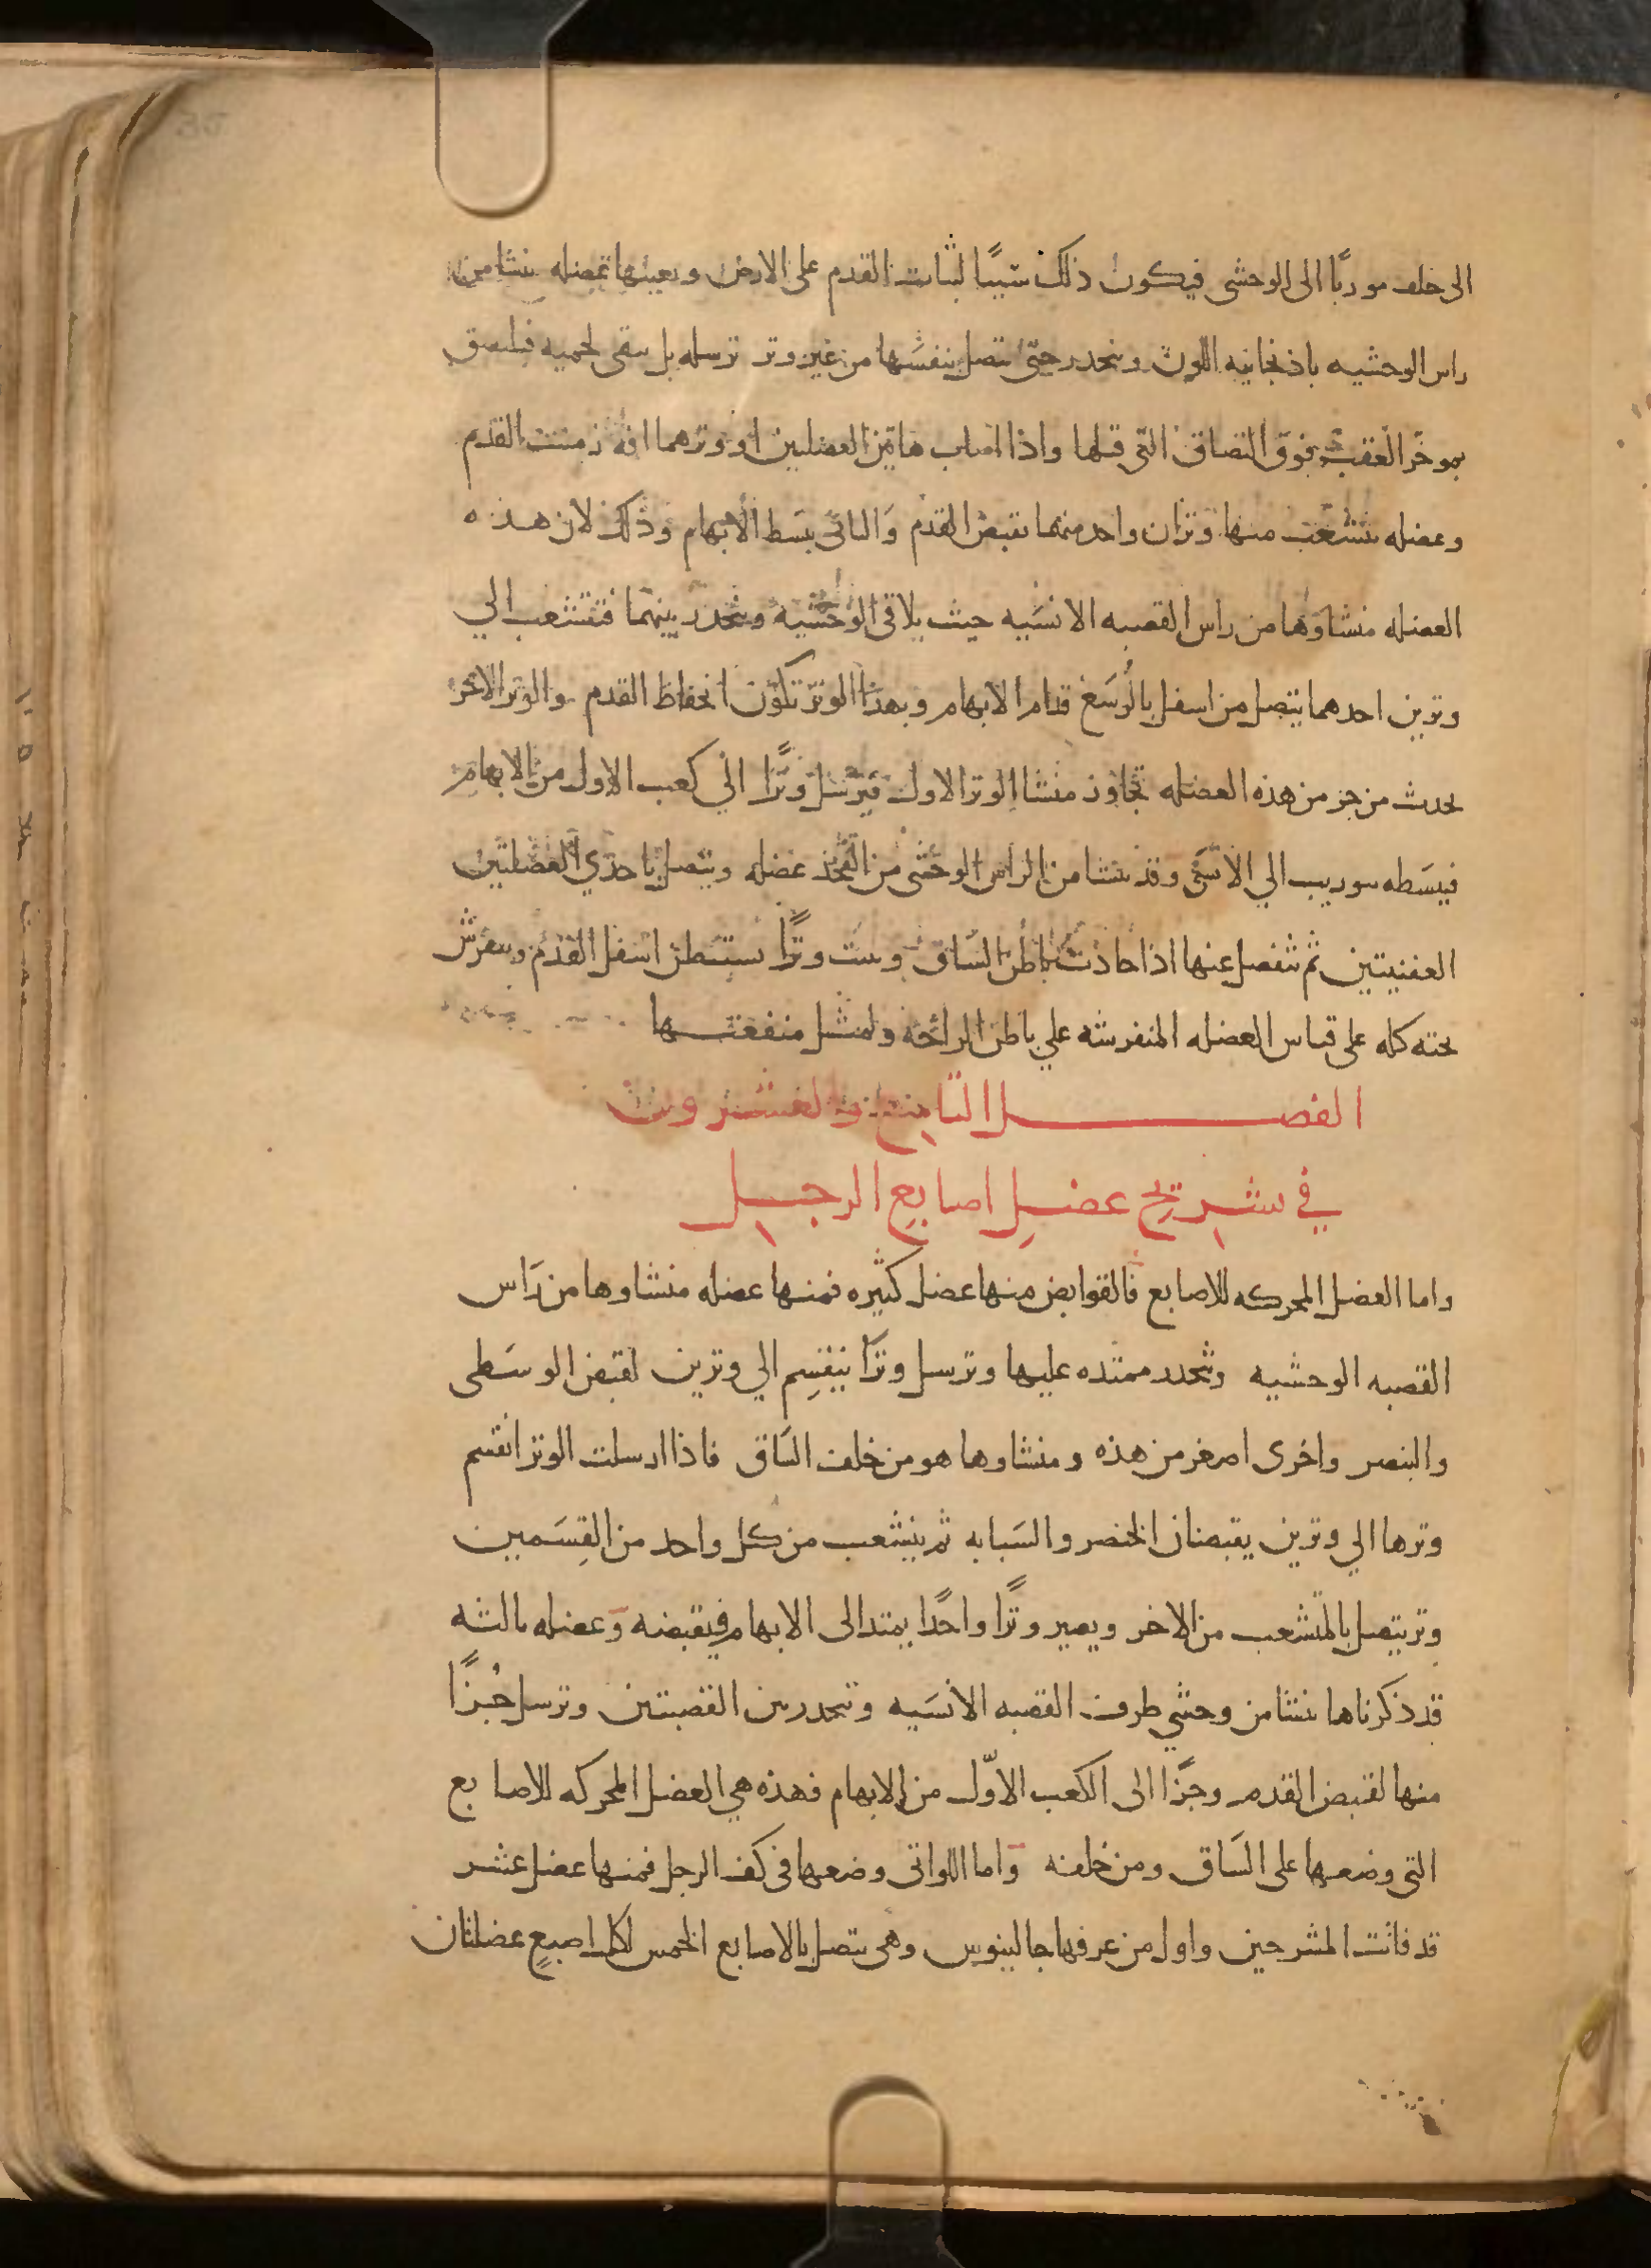 الى خلف موربًا الى الوحشى فيكون ذلك سببًا لثبات القدم على الارض ويعينها عضله تنشا من
راس الوحشيه باذنجانيه اللون وينحدر حتى تتصل بنفسها من غير وتر ترسله بل تبقى لحميه فيلتصق
بموخر العقب فوق التصاق التى قبلها واذا اصاب هاتين العضلتين او وترهما افة زمنت القدم
وعضله تتشعب منها وتران واحد منهما يقبض القدم والثانى يبسط الابهام وذلك لان هذه
العضله منشاوها من راس القصبه الانسيه حيث يلاقى الوحشيه وينحدر بينهما فتتشعب الي
وترين احدهما يتصل من اسفل بالرسغ قدام الابهام وبهذا الوتر تكون انخفاظ القدم والوتر الاخر
يحدث من جز من هذه العضله تجاوز منشا الوتر الاول فيرسل وترًا الي كعب الاول من الابهام
فيبسطه بتوريب الي الانسى وقد تنشا من الراس الوحشى من الفخذ عضله ويتصل باحدي العضلتين
العقبيتين ثم تنفصل عنها اذا حاذت باطن الساق وينبت وترًا يستبطن اسفل القدم وينفرش
تحته كله على قياس العضله المنفرشه علي باطن الراحة ولمثل منفعتها
الفصل الثامن والعشرون
في تشريح عضل اصابع الرجل
واما العضل المحركه للاصابع فالقوابض منها عضل كثيره فمنها عضله منشاوها من رَاس
القصبه الوحشيه وينحدر ممتده عليها وترسل وترًا ينقسم الي وترين لقبض الوسَطى
والبنصر واخرى اصغر من هذه ومنشاوها هو من خلف السَاق فاذا ارسلت الوتر انقسم
وترها الي وترين يقبضان الخنصر والسَبابه ثم ينشعب من كل واحد من القِسَمين
وتر يتصل بالمتشعب من الاخر ويصير وترًا واحدًا يمتد الى الابهام فيقبضه وعضله ثالثه
قد ذكرناها تنشا من وحشي طرف القصبه الانسَيه وتنحدر بين القصبتين وترسل جُزًا
منها لقبض القدم وجزًا الى الكعب الاوّل من الابهام فهذه هي العضل المحركه للاصابع
التى وضعها على السَاق ومن خلفه واما اللواتى وضعها فى كف الرجل فمنها عضل عشر
قد فاتت المشرحين واول من عرفها جالينوس وهى تتصل بالاصابع الخمس لكل اصبعٍ عضلتان